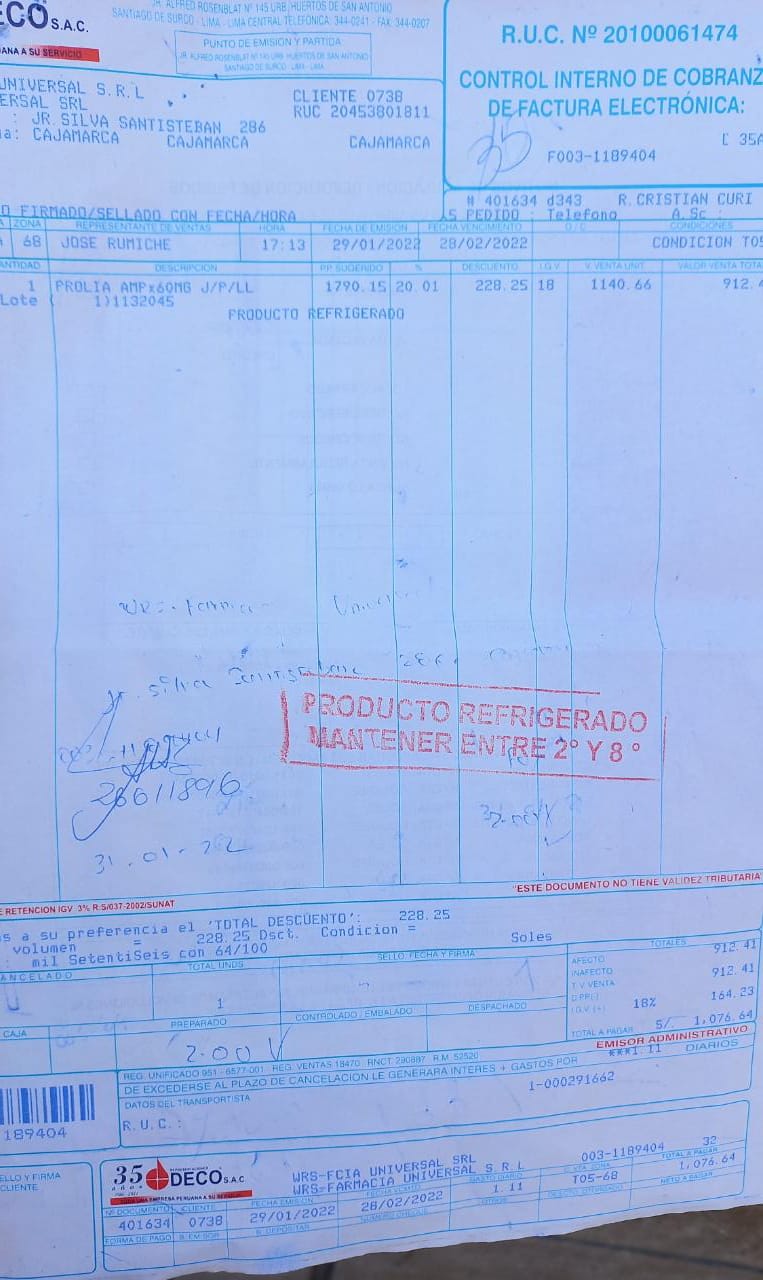 JR. ALFRED ROSENBLAT Nº 145 URB. HUERTOS DE SAN ANTONIO
DECO S.A.C.
SANTIAGO DE SURCO - LIMA - LIMA CENTRAL TELEFONICA: 344-0241 - FAX: 344-0207
UANA A SU SERVICIO
PUNTO DE EMISIÓN Y PARTIDA
JR. ALFRED ROSENBLAT Nº 145 URB. HUERTOS DE SAN ANTONIO
SANTIAGO DE SURCO - LIMA - LIMA
R.U.C. Nº 20100061474
CONTROL INTERNO DE COBRANZ
DE FACTURA ELECTRÓNICA:
35
F003-1189404
UNIVERSAL S.R.L
ERSAL SRL
CLIENTE 0738
RUC 20453801811
: JR.SILVA SANTISTEBAN 286
a: CAJAMARCA CAJAMARCA CAJAMARCA
# 401634 d343 R.CRISTIAN CURI
O FIRMADO/SELLADO CON FECHA/HORA
PEDIDO : Telefono A.Sc :
ZONA REPRESENTANTE DE VENTAS HORA FECHA DE EMISION FECHA VENCIMIENTO O/C CONDICIONES
68 JOSE RUMICHE 17:13 29/01/2022 28/02/2022 CONDICION T05
ANTIDAD DESCRIPCION P.P. SUGERIDO % DESCUENTO I.G.V. V. VENTA UNIT. VALOR VENTA TOTA
1 PROLIA AMPx60MG J/P/LL 1790.15 20.01 228.25 18 1140.66 912.4
Lote ( 1)1132045
PRODUCTO REFRIGERADO
Jr. Silva Santisteban 286
PRODUCTO REFRIGERADO
MANTENER ENTRE 2º Y 8º
26611896
31-01-22
"ESTE DOCUMENTO NO TIENE VALIDEZ TRIBUTARIA"
E RETENCION IGV 3% R.S/037-2002/SUNAT
s a su preferencia el 'TOTAL DESCUENTO': 228.25
volumen = 228.25 Dsct. Condicion =
: mil SetentiSeis con 64/100 Soles
ANCELADO TOTAL UNDS SELLO, FECHA Y FIRMA TOTALES
AFECTO 912.41
INAFECTO
T.V VENTA 912.41
I.G.V (+) 18% 164.23
TOTAL A PAGAR S/. 1,076.64
1
CAJA PREPARADO CONTROLADO / EMBALADO DESPACHADO
2.00
EMISOR ADMINISTRATIVO
***1.11 DIARIOS
REG. UNIFICADO 951 - 6577-001 REG. VENTAS 18470 RNCT: 290887 R.M. 52520
DE EXCEDERSE AL PLAZO DE CANCELACION LE GENERARA INTERES + GASTOS POR
DATOS DEL TRANSPORTISTA
1-000291662
R.U.C.:
189404
ELLO Y FIRMA
CLIENTE
35 años DECO S.A.C
TODA UNA EMPRESA PERUANA A SU SERVICIO
WRS-FCIA UNIVERSAL SRL
WRS-FARMACIA UNIVERSAL S.R.L
003-1189404 32
TOTAL A PAGAR
1,076.64
Nº DOCUMENTO CLIENTE FECHA EMISION FECHA VENCTO GASTO DIARIO
401634 0738 29/01/2022 28/02/2022 1.11 T05-68
NETO A PAGAR
FORMA DE PAGO